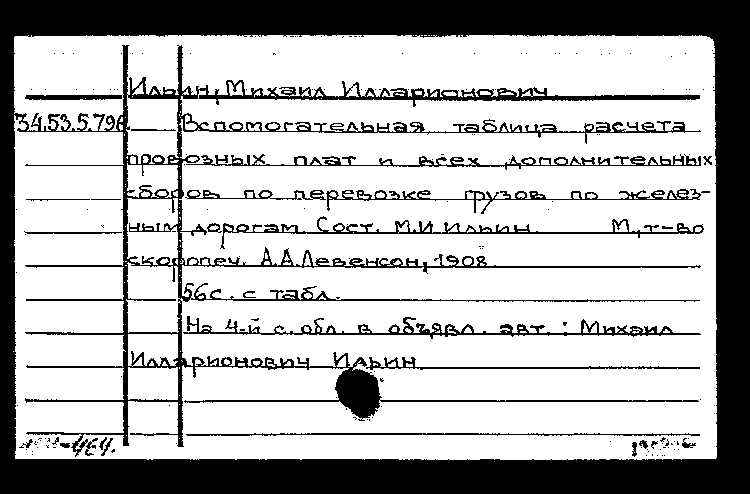 Ильин, Михаил Илларионович
34.53.5.796. Вспомогательная таблица расчета
провозных плат и всех дополнительных
сборов по перевозке грузов по желез-
ным дорогам. Сост. М.И Ильин. М., т-во
скоропеч. А.А.Левенсон, 1908.
56с. с табл.
На 4-й с. обл. в объявл. авт.: Михаил
Илларионович Ильин.
-464.